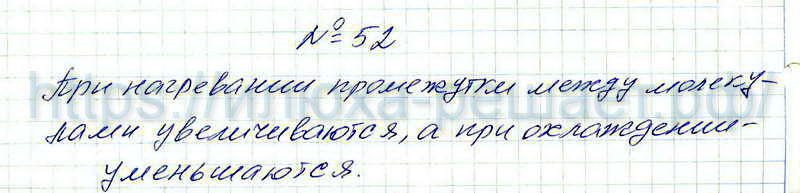 № 52
При нагревании промежутки между молеку-
лами увеличиваются, а при охлаждении-
уменьшаются.